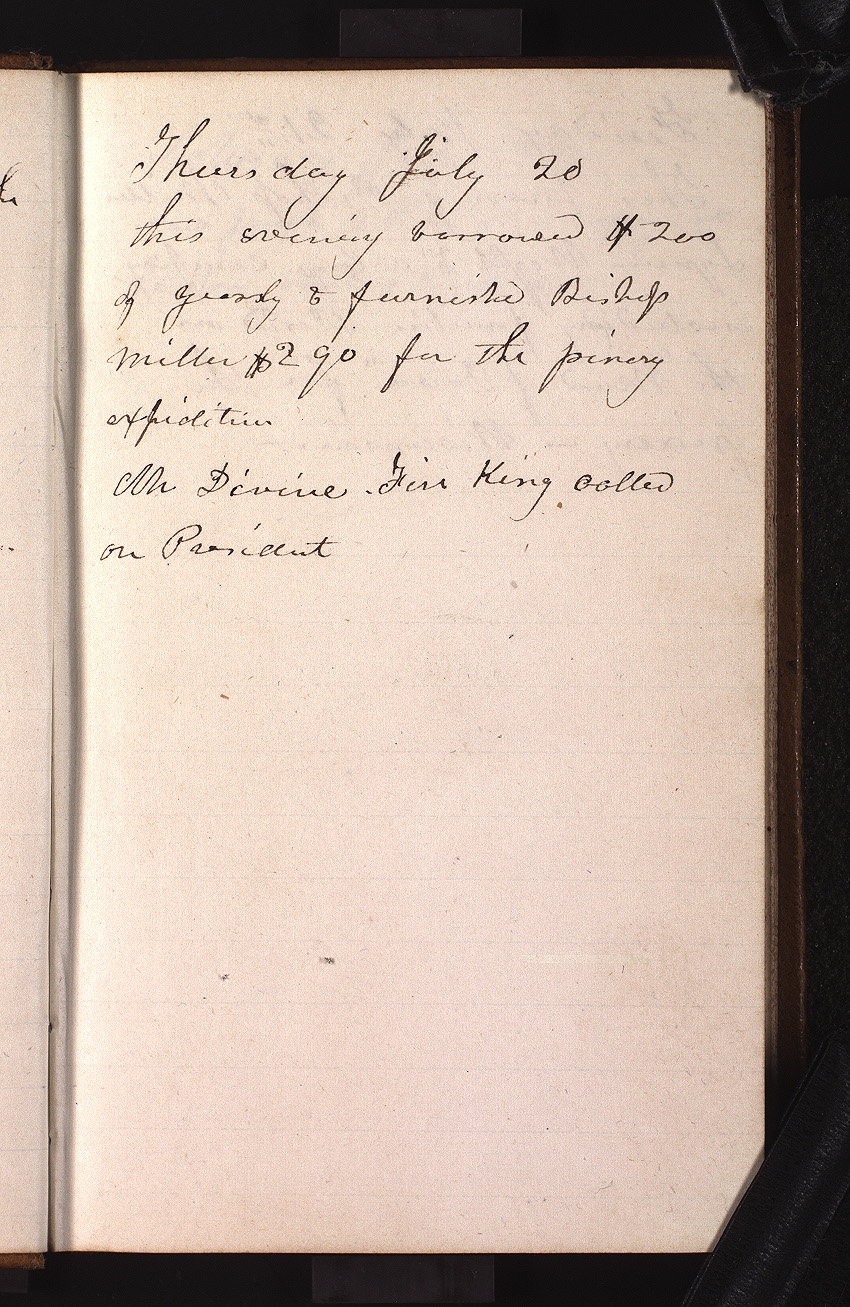 Thursday July 20
this evening borrowed $200
of yearsly & furnished Bishop
Miller $290 for the pinery
expidition
Mr Divine Fire King called
on President